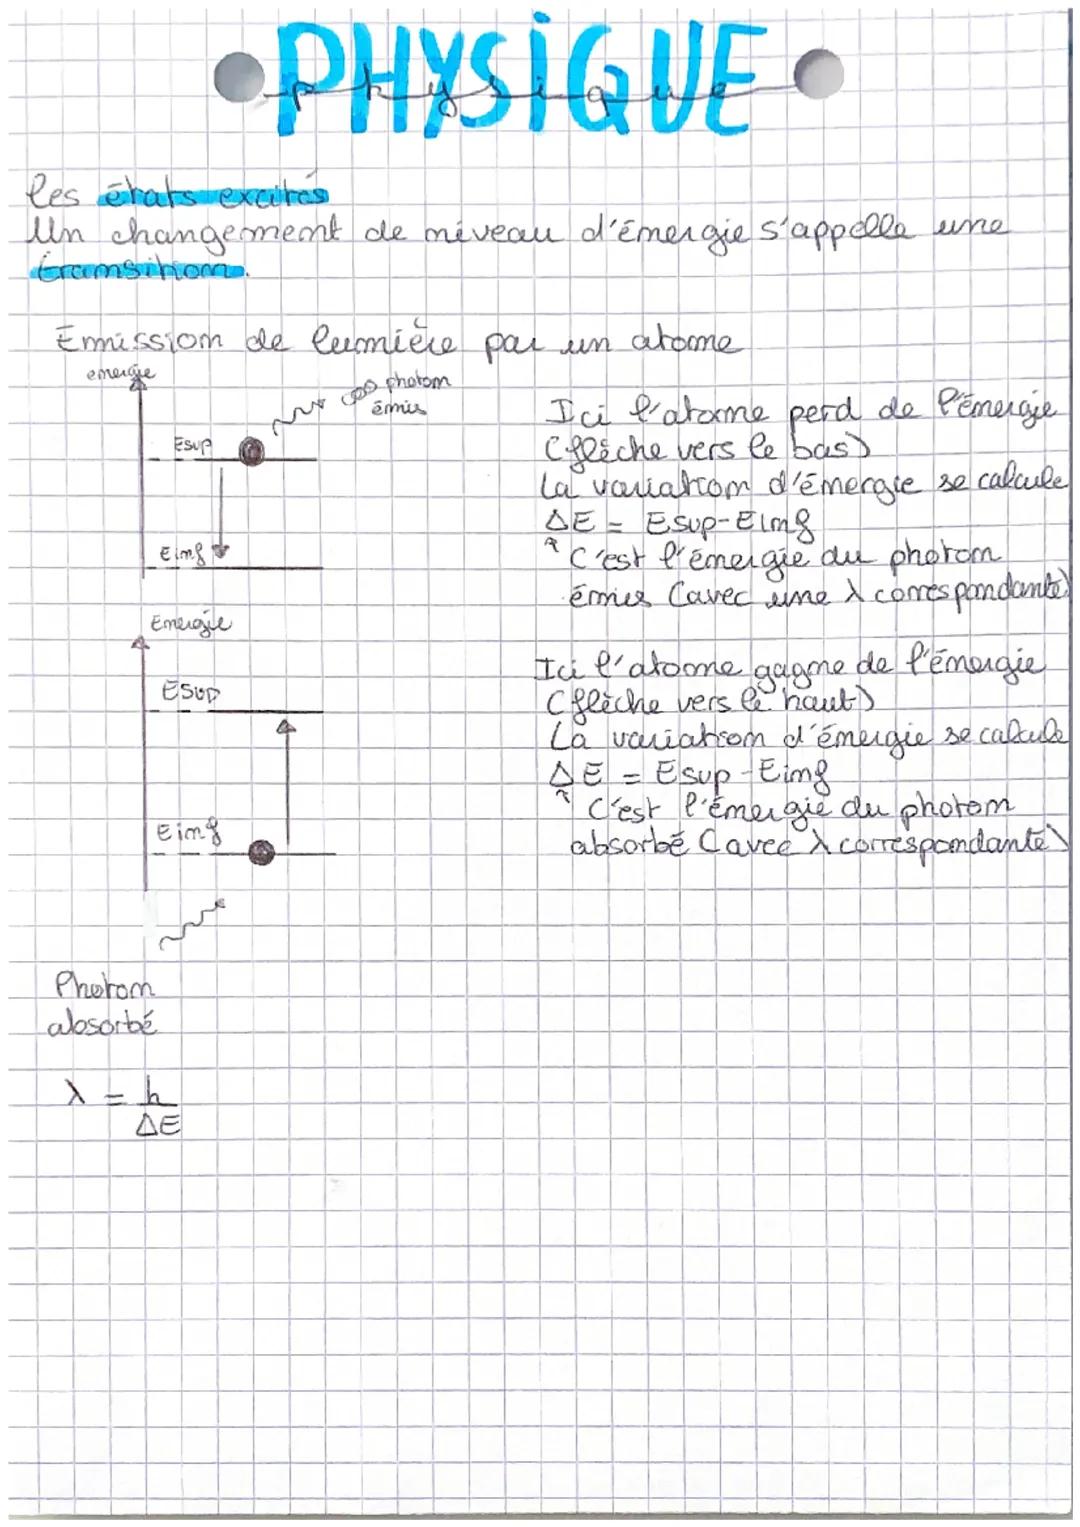 PHYSIQUE
physique
les états excités
Un changement de niveau d'énergie s'appelle une
transition.
Emission de lumière par un atome
energie
photon
émis
Esup
Einf
Ici l'atome perd de l'énergie
(flèche vers le bas)
La variation d'énergie se calcule
ΔE = Esup-Einf
↑ C'est l'énergie du photon
émis (avec une λ correspondante)
Energie
Esup
Einf
Ici l'atome gagne de l'énergie
(flèche vers le haut)
La variation d'énergie se calcule
ΔE = Esup-Einf
↑ C'est l'énergie du photon
absorbé (avec λ correspondante)
Photon
absorbé
λ = h
ΔE